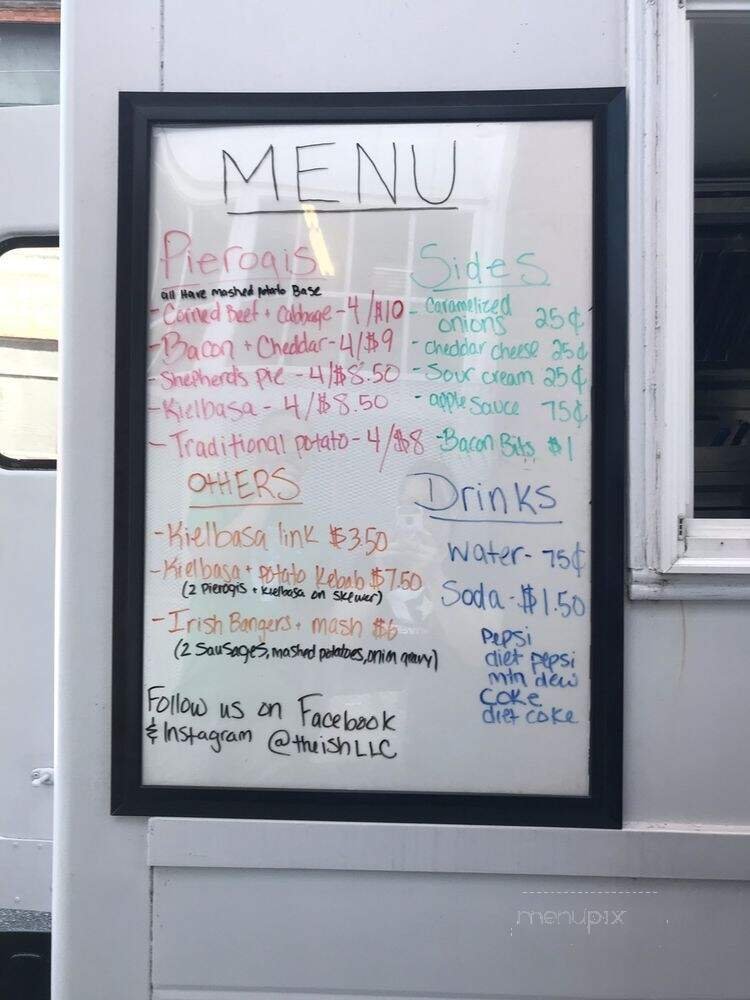 MENU
Pierogis
all Have mashed potato Base
- Corned Beef + Cabbage - 4/$10
- Bacon + Cheddar - 4/$9
- Shepherd's Pie - 4/$8.50
- Kielbasa - 4/$8.50
- Traditional potato - 4/$8
OTHERS
- Kielbasa link $3.50
- Kielbasa + potato Kebab $7.50
(2 Pierogis + Kielbasa on skewer)
- Irish Bangers + mash $6
(2 Sausages, mashed potatoes, onion gravy)
Follow us on Facebook
& Instagram @theishLLC
Sides
- Caramelized
onions 25¢
- cheddar cheese 25¢
- Sour cream 25¢
- apple sauce 75¢
- Bacon Bits $1
Drinks
Water - 75¢
Soda - $1.50
Pepsi
diet pepsi
mtn dew
COKE
diet coke
menupix